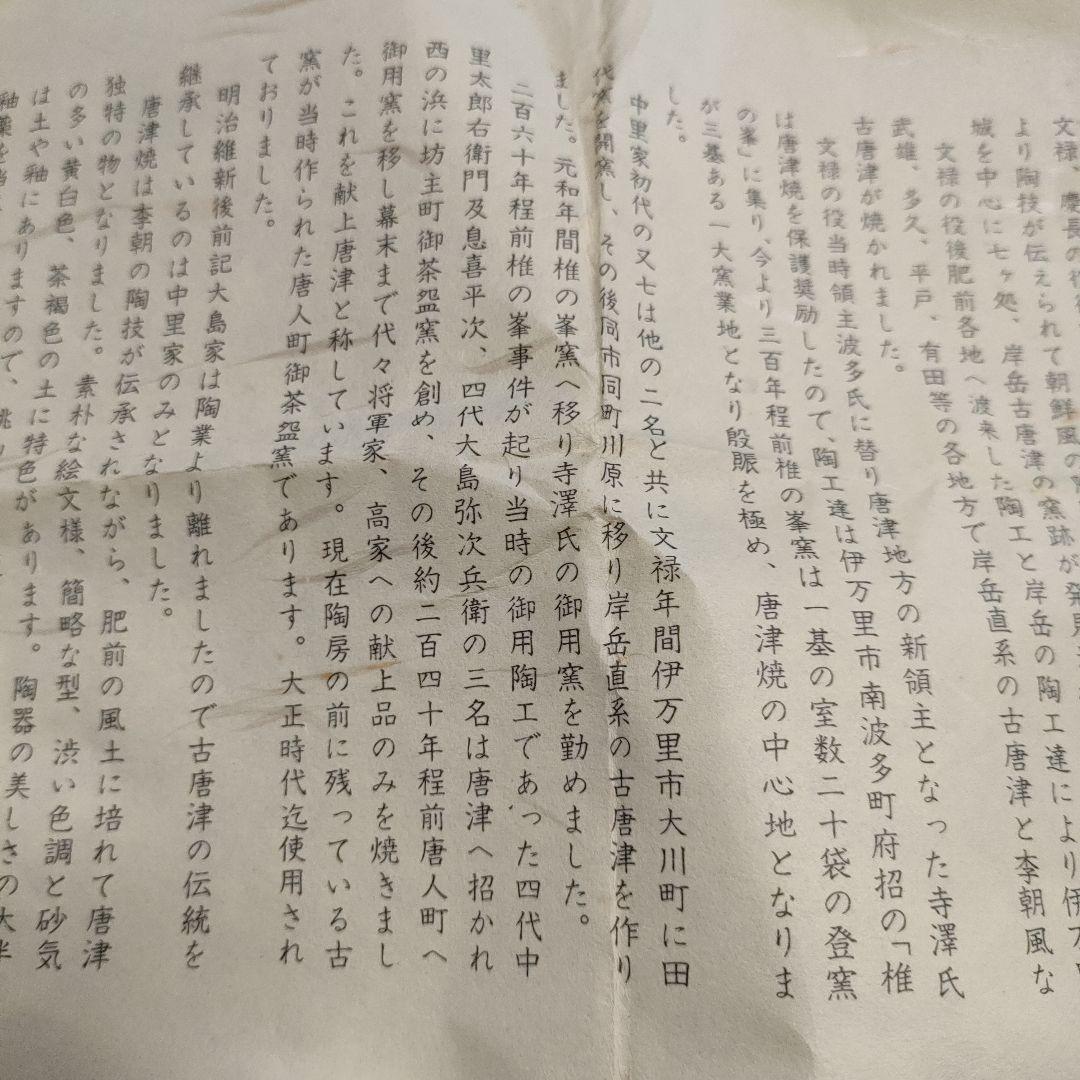 文禄、慶長の役後
より陶技が伝えられて朝鮮風の
城を中心に七ヶ処、岸岳古唐津の窯跡が発見
文禄の役後肥前各地へ渡来した陶工と岸岳の陶工達により伊万里
武雄、多久、平戸、有田等の各地方で岸岳直系の古唐津と李朝風な
古唐津が焼かれました。
文禄の役当時領主波多氏に替り唐津地方の新領主となった寺澤氏
は唐津焼を保護奨励したので、陶工達は伊万里市南波多町府招の「椎
の峯」に集り、今より三百年程前椎の峯窯は一基の室数二十袋の登窯
が三基ある一大窯業地となり殷賑を極め、唐津焼の中心地となりま
した。
中里家初代の又七は他の二名と共に文禄年間伊万里市大川町に田
代窯を開窯し、その後同市同町川原に移り岸岳直系の古唐津を作り
ました。元和年間椎の峯窯へ移り寺澤氏の御用窯を勤めました。
二百六十年程前椎の峯事件が起り当時の御用陶工であった四代中
里太郎右衛門及息喜平次、四代大島弥次兵衛の三名は唐津へ招かれ
西の浜に坊主町御茶盌窯を創め、その後約二百四十年程前唐人町へ
御用窯を移し幕末まで代々将軍家、高家への献上品のみを焼きまし
た。これを献上唐津と称しています。現在陶房の前に残っている古
窯が当時作られた唐人町御茶盌窯であります。大正時代迄使用され
ておりました。
明治維新後前記大島家は陶業より離れましたので古唐津の伝統を
継承しているのは中里家のみとなりました。
唐津焼は李朝の陶技が伝承されながら、肥前の風土に培れて唐津
独特の物となりました。素朴な絵文様、簡略な型、渋い色調と砂気
の多い黄白色、茶褐色の土に特色があります。陶器の美しさの大半
は土や釉にありますので、
釉薬を